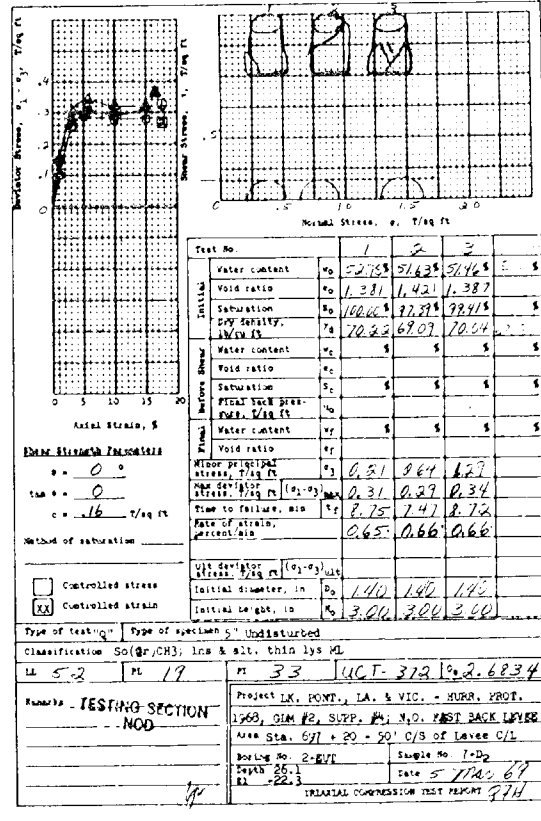 1 2 3
Deviator Stress, σ1 - σ3, T/sq ft
.4
.3
.2
.1
0
0 5 10 15 20
Axial Strain, %
Shear Stress, τ, T/sq ft
.5
0 .5 1.0 1.5 2.0
Normal Stress, σ, T/sq ft
Shear Strength Parameters
φ = 0 °
tan φ = 0
c = .16 T/sq ft
Method of saturation
Controlled stress
XX Controlled strain
Test No. 1 2 3
Initial
Water content w0 % 51.63% 51.46% %
Void ratio e0 1.381 1.421 1.387
Saturation S0 97.39% 99.41% %
Dry density, lb/cu ft γd 70.22 69.09 70.04
Before Shear
Water content wc % % % %
Void ratio ec
Saturation Sc % % % %
Final back pressure, T/sq ft u0
Final
Water content wf % % % %
Void ratio ef
Minor principal stress, T/sq ft σ3 0.21 0.64 1.29
Max deviator stress, T/sq ft (σ1-σ3)max 0.31 0.29 0.34
Time to failure, min tf 8.75 7.47 8.72
Rate of strain, percent/min 0.65 0.66 0.66
Ult deviator stress, T/sq ft (σ1-σ3)ult
Initial diameter, in D0 1.40 1.40 1.40
Initial height, in H0 3.00 3.00 3.00
Type of test "Q" Type of specimen 5" Undisturbed
Classification So(gr)CH3; lns & alt. thin lys ML
LL 52 PL 19 PI 33 UCT-372 Gs 2.6834
Remarks TESTING SECTION
NOD
Project LK. PONT., LA. & VIC. - HURR. PROT.
1968, GDM #2, SUPP. #4; N.O. EAST BACK LEVEE
Area Sta. 697 + 20 - 50' C/S of Levee C/L
Boring No. 2-EUT Sample No. 7-D2
Depth 26.1
El -22.3 Date 5 Mar 69
TRIAXIAL COMPRESSION TEST REPORT